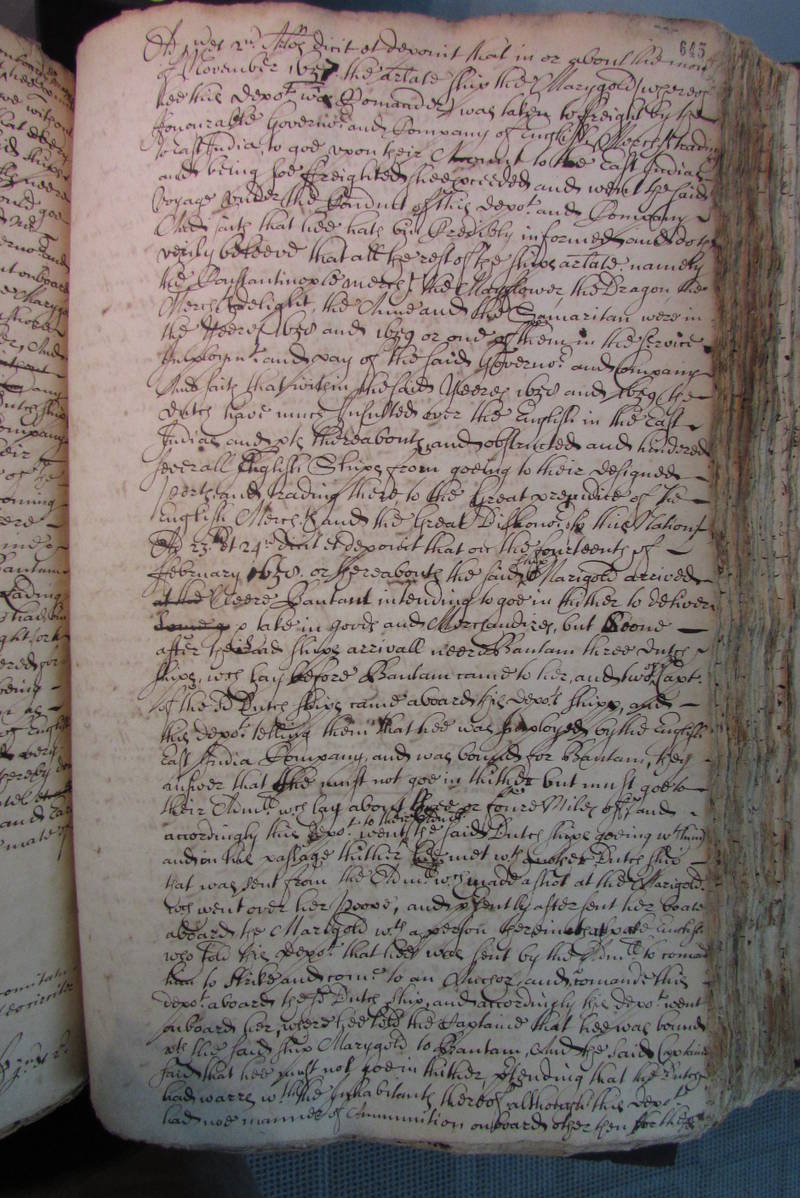 645
Ad et 2 dicit et deponit that in or about the mon
of November 1657 the arlate ship the Marygold (whereof
hee this depot was Comander) was taken to freight by the
honourable Governor and Company of English Merchts tradin
to East India, to goe upon their Account to the East Indias
and being soe freighted shee proceeded and went the said
voyage under the Conduct of this depot and Company
And saith that hee hath bin Credibly informed and doth
verily beleeve that all the rest of the ships arlate namely
the Constantinople Mercht, the Mayflower, the Dragon, the
Merchts delight, the Anne and the Samaritan were in
the yeeres 1658 and 1659 or one of them in the service
imploymt and pay of the said Governor and Company
And saith that within the said yeeres 1658 and 1659 the
dutch have much insulted over the English in the East
Indias and pts thereabouts, and obstructed and hindered
severall English Ships from goeing to their designed
ports and trading there, to the Great prejudice of the
English Merchts and the Great dishonor of this Nation
Ad 23 et 24 dicit et deponit that on the fourteenth of
February 1658 or thereabouts the said shipp Marigold arrived
neere Bantam intending to goe in thither to deliver
& take in goods and Merchandizes, but soone
after the said ships arrivall neere Bantam three dutch
ships, wch lay before Bantam came to her, and two Captns
of the sd Dutch ships came aboard this depots shipp, and
this depot telling them that hee was Imployed by the English
East India Company, and was bound for Bantam, they
answer that hee must not goe in thither but must goe to
their Admll wch lay about three or foure Miles off, and
accordingly this depot went to their the said Dutch ships goeing wth him
and on his passage thither hee met wth another Dutch ship
that was sent from the Admll wch made a shot at the Marigold
wch went over her poope, and presently after sent her boate
aboard the Marigold wth a person therein that spake English
who told this depot that hee was sent by the Admll to comand
him to strike and come to an Anchor, and comande this
depot aboard the sd Dutch ship, and accordingly this depot went
onboard her, where hee told the Captaine that hee was bound
wth the said ship Marygold to Bantam, And the said Captaine
said that hee must not goe in thither, ptending that the Dutch
had warre wth the Inhabitants thereof, although this depot
had noe manner of Ammunition onboard other then for the